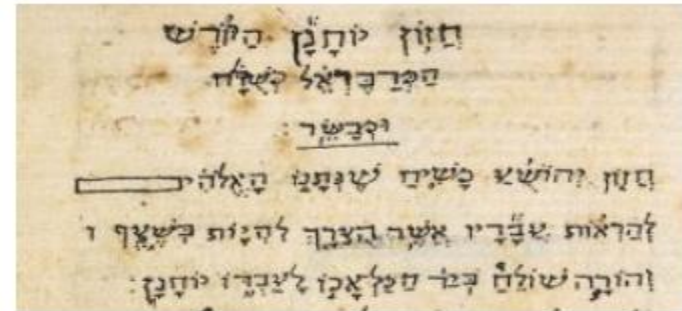 חזון יוחנן
וכבשר :
חזון יהושע משיח שנתנו האלהי
להראות עבדיו אשר הצרך להיות בשצף ו
והורה שולח ביד המלאכו לעבדו יוחנן :